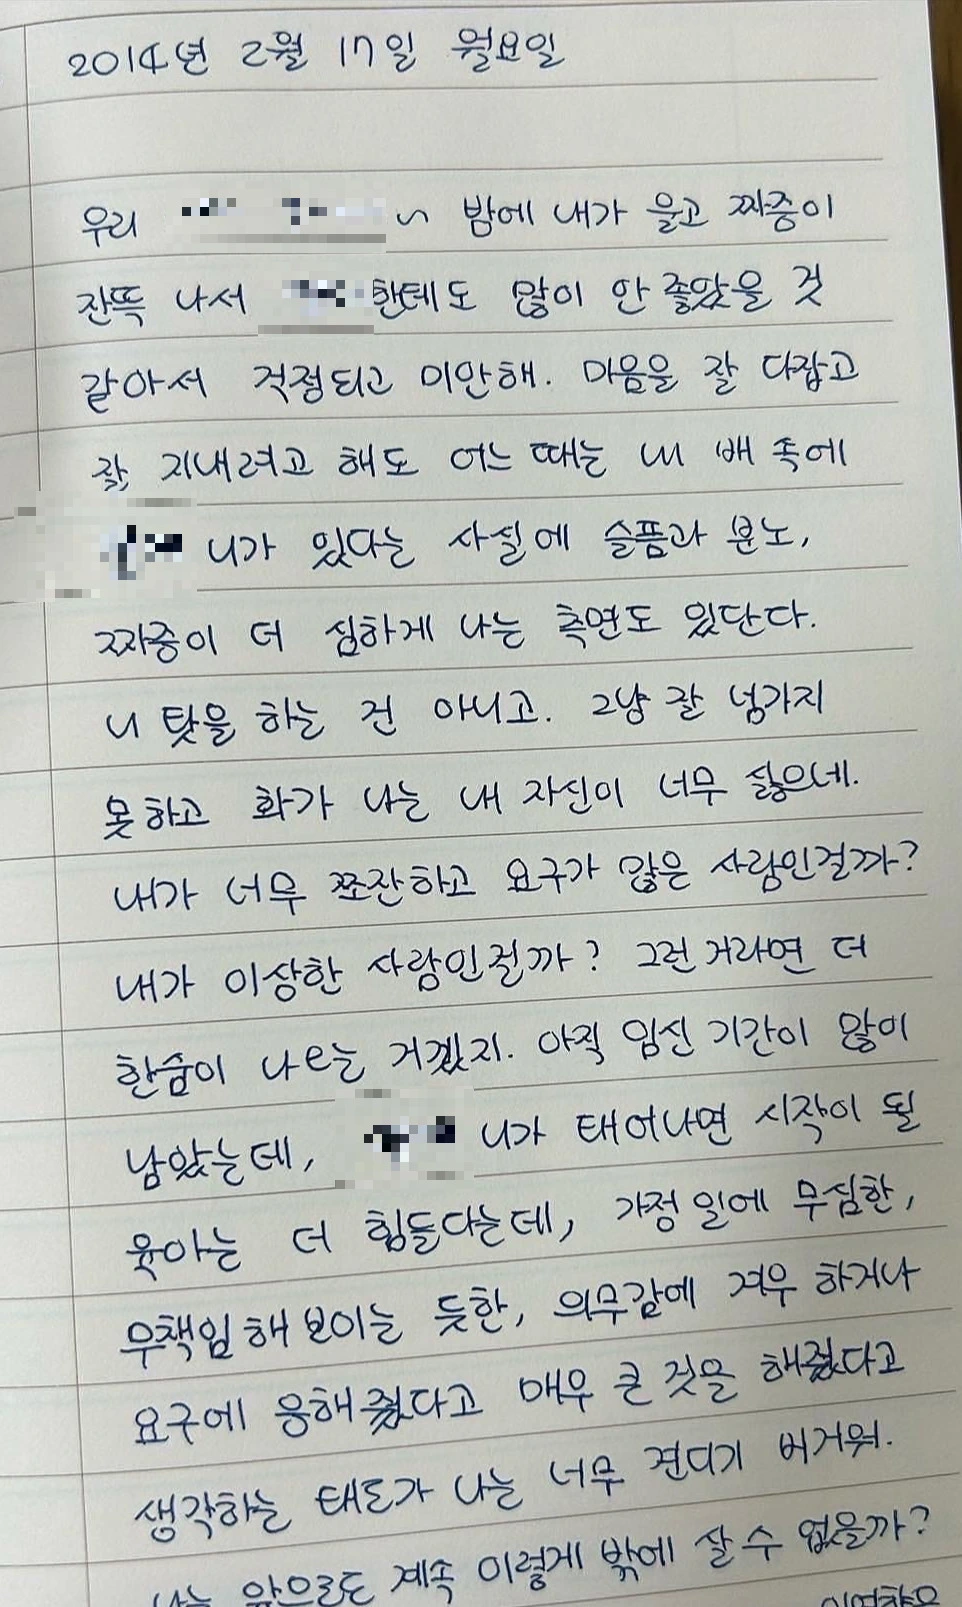 2014년 2월 17일 월요일
우리 밤에 내가 울고 짜증이
잔뜩 나서 한테도 많이 안 좋았을 것
같아서 걱정되고 미안해. 마음을 잘 다잡고
잘 지내려고 해도 어느 때는 내 배 속에
니가 있다는 사실에 슬픔과 분노,
짜증이 더 심하게 나는 측면도 있단다.
니 탓을 하는 건 아니고. 그냥 잘 넘기지
못하고 화가 나는 내 자신이 너무 싫으네.
내가 너무 쪼잔하고 요구가 많은 사람인걸까?
내가 이상한 사람인걸까? 그런거라면 더
한숨이 나오는 거겠지. 아직 임신 기간이 많이
남았는데, 니가 태어나면 시작이 될
육아는 더 힘들다는데, 가정 일에 무심한,
무책임해 보이는 듯한, 의무감에 겨우 하거나
요구에 응해줬다고 매우 큰 것을 해줬다고
생각하는 태도가 나는 너무 견디기 버거워.
나는 앞으로도 계속 이렇게 밖에 살 수 없을까?